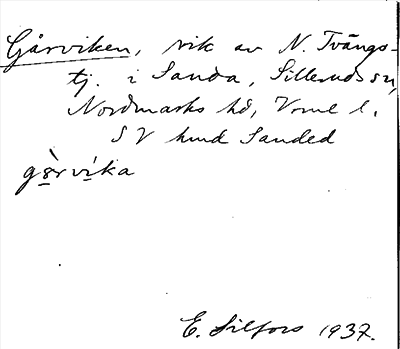 Gårviken, vik av N. Tvängs-
tj. i Sanda, Sillerud sn,
Nordmarks hd, Vrml l.
SV hmd Sanded
gàrvika
E. Silfors 1937.